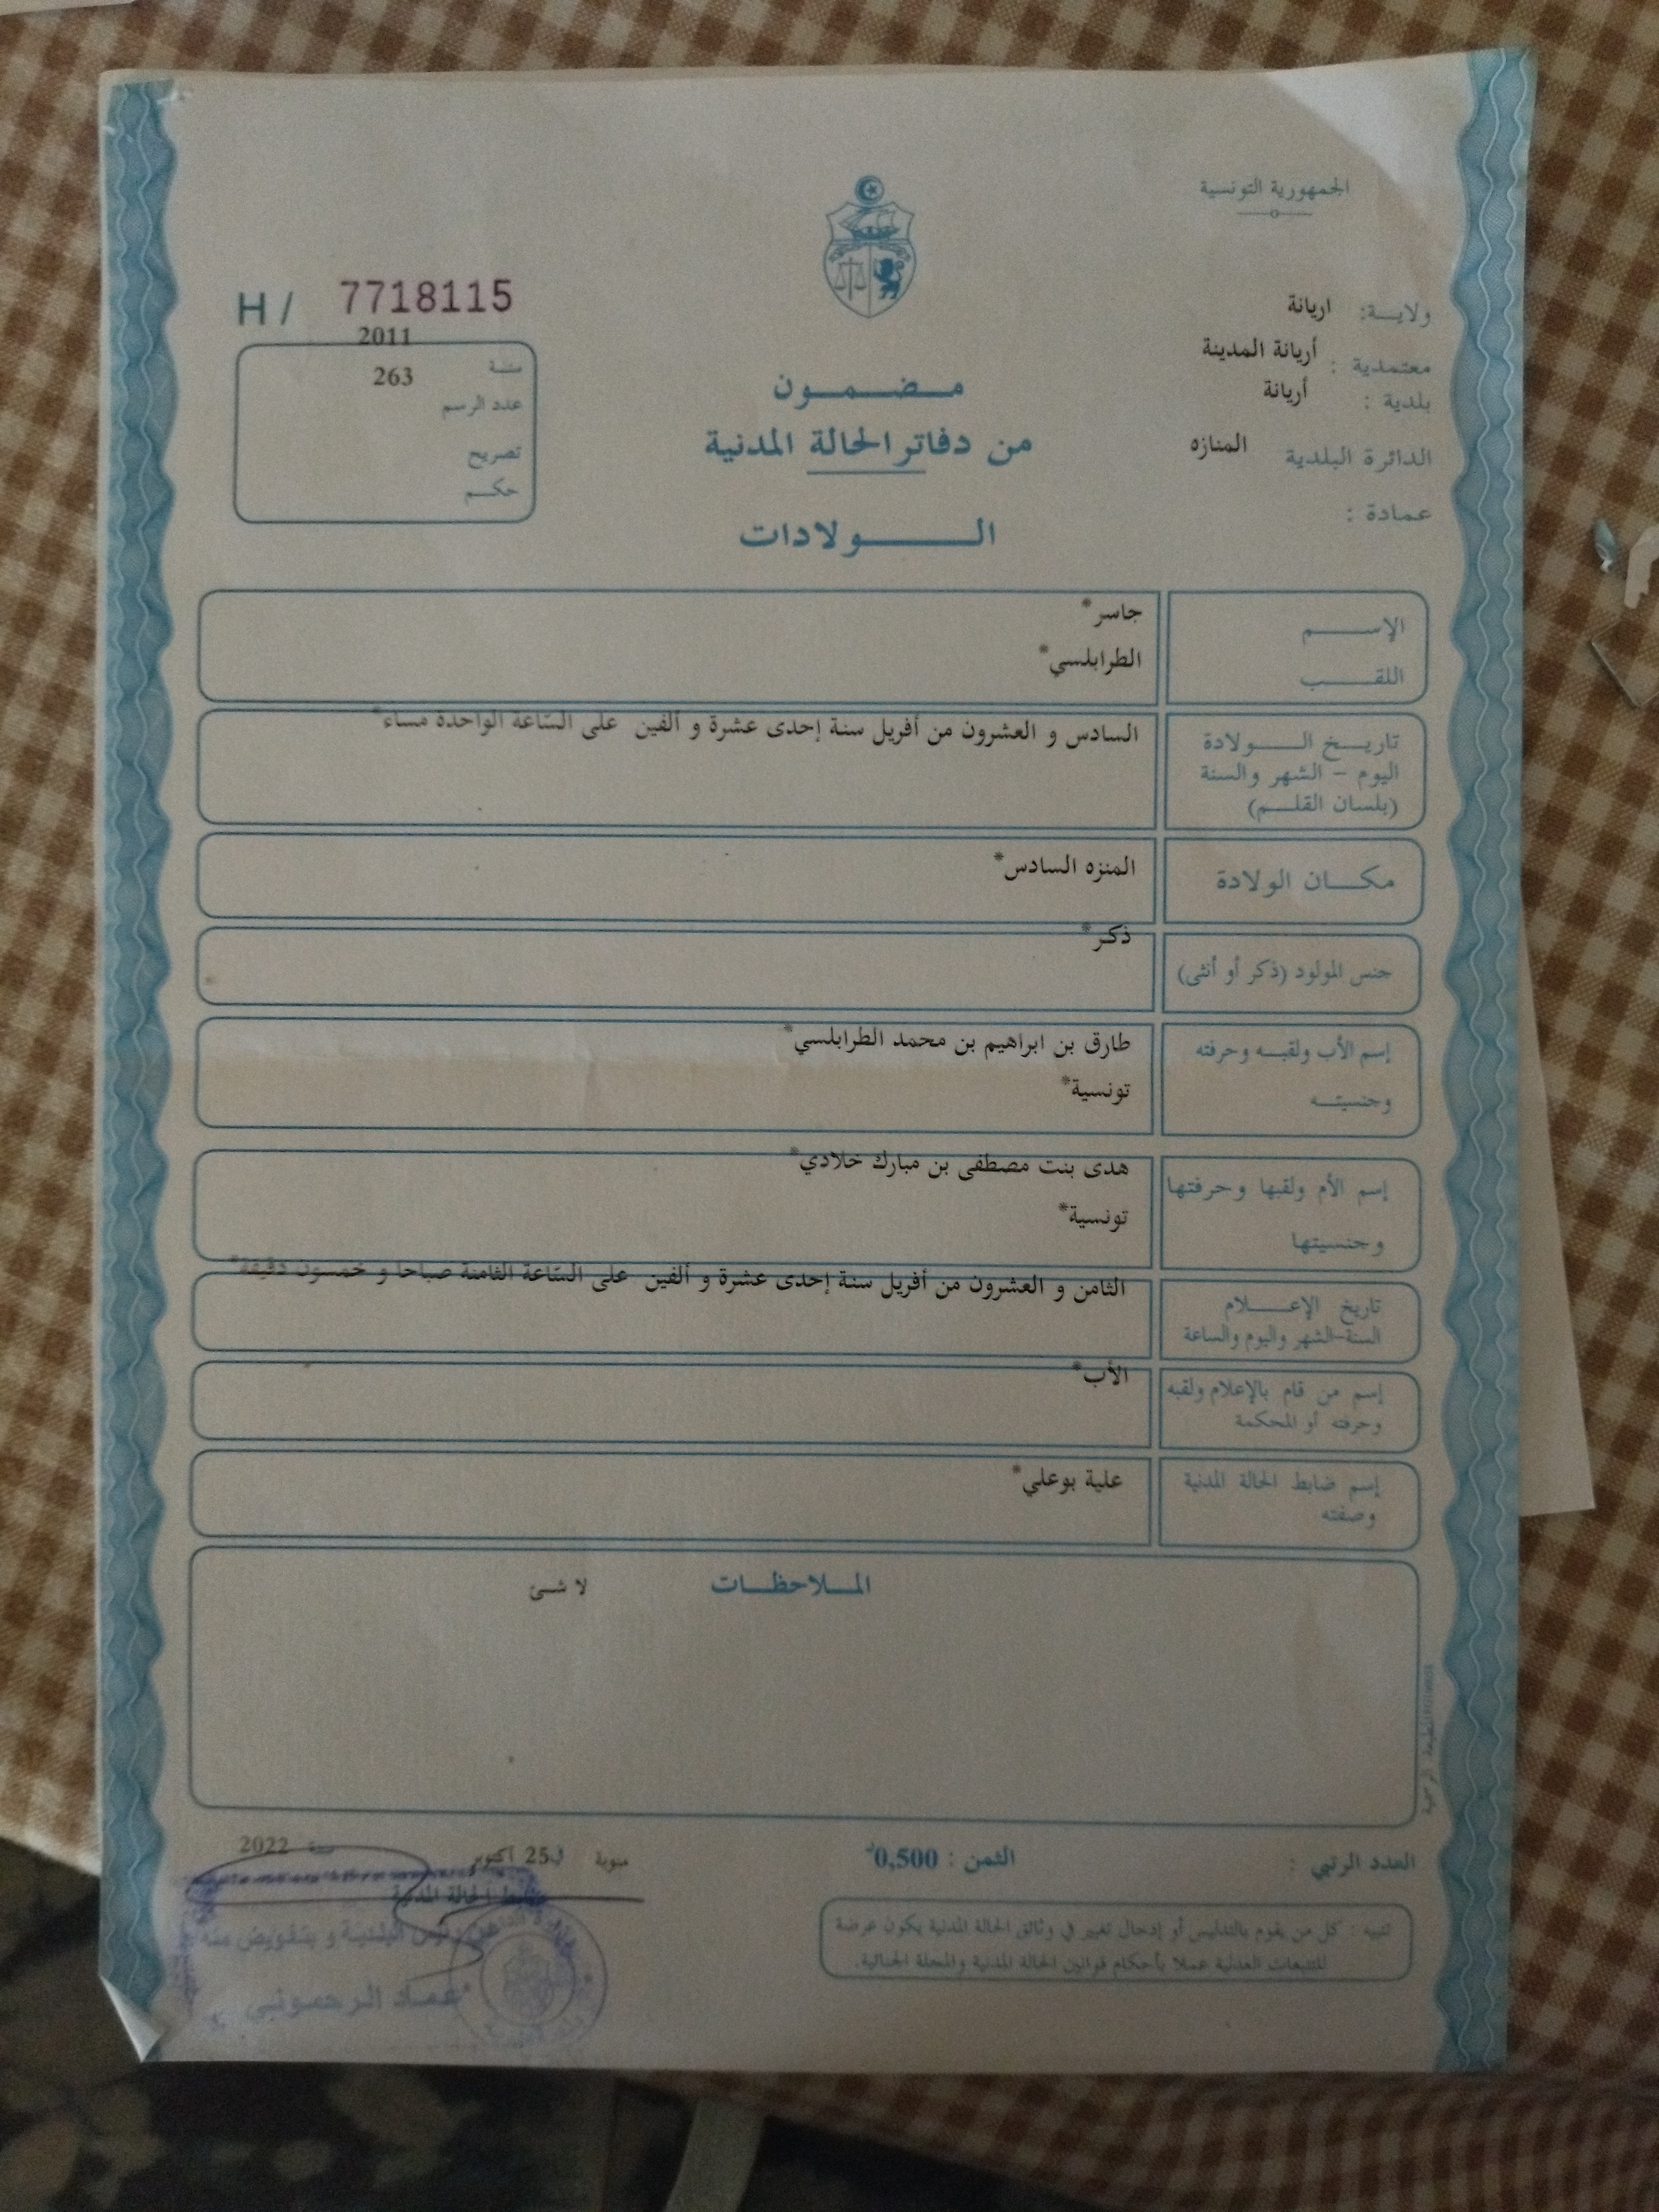 الجمهورية التونسية
ولايـــة: اريانة
معتمدية : أريانة المدينة
بلدية : أريانة
الدائرة البلدية المنازه
عمادة :
H / 7718115
2011
سنة
263
عدد الرسم
تصريح
حكـــم
مــضــمــون
من دفاتر الحالة المدنية
الـــــولادات
الإســـــم جاسر*
اللقـــــب الطرابلسي*
تاريـــخ الـــــولادة السادس و العشرون من أفريل سنة إحدى عشرة و ألفين على الساعة الواحدة مساء*
اليوم – الشهر والسنة
(بلسان القلـــم)
مكـــان الولادة المنزه السادس*
جنس المولود (ذكر أو أنثى) ذكر*
إسم الأب ولقبـــه وحرفته طارق بن ابراهيم بن محمد الطرابلسي*
وجنسيتـــه تونسية*
إسم الأم ولقبها وحرفتها هدى بنت مصطفى بن مبارك خلادي*
وجنسيتها تونسية*
تاريخ الإعـــــلام الثامن و العشرون من أفريل سنة إحدى عشرة و ألفين على الساعة الثامنة صباحا و خمسون دقيقة*
السنة-الشهر واليوم والساعة
إسم من قام بالإعلام ولقبه الأب*
وحرفته أو المحكمة
إسم ضابط الحالة المدنية علية بوعلي*
وصفته
المـــلاحظـــات لا شئ
العدد الرتبي :
الثمن : 0,500د
منوبة في 25 أكتوبر سنة 2022
ضابط الحالة المدنية
عن رئيس البلدية و بتفويض منه
عماد الرحموني
تنبيه : كل من يقوم بالتدليس أو إدخال تغيير في وثائق الحالة المدنية يكون عرضة
للتتبعات العدلية عملا بأحكام قوانين الحالة المدنية والمجلة الجنائية.